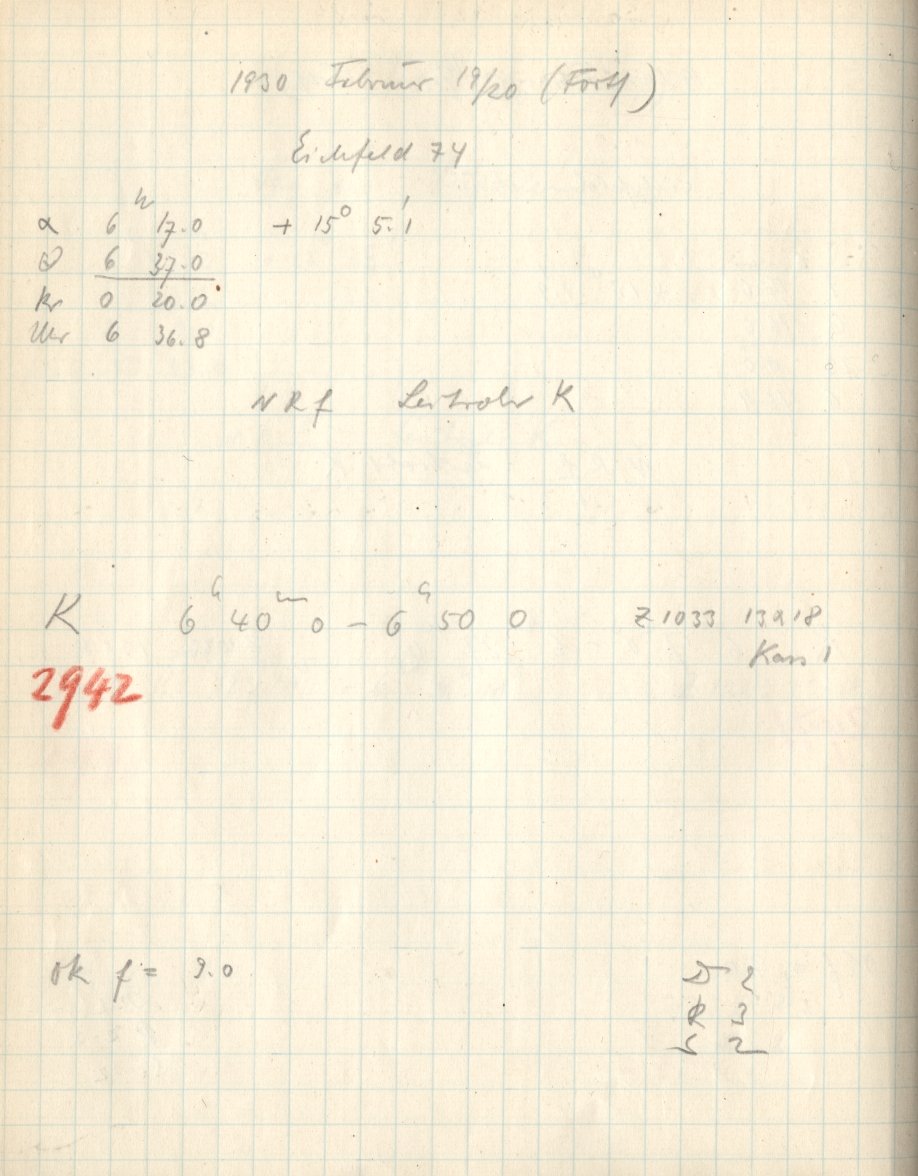 1930 Februar 19/20 (Forts)
Eichfeld 74
α 6ʰ 17.0 + 15° 5.'1
θ 6 37.0
kr 0 20.0
Uhr 6 36.8
NRf Leitrohr K
K 6ʰ 40ᵐ 0 – 6ʰ 50 0 Z 1033 13x18
Kass 1
2942
ok f = 9.0
D 2
R 3
S 2